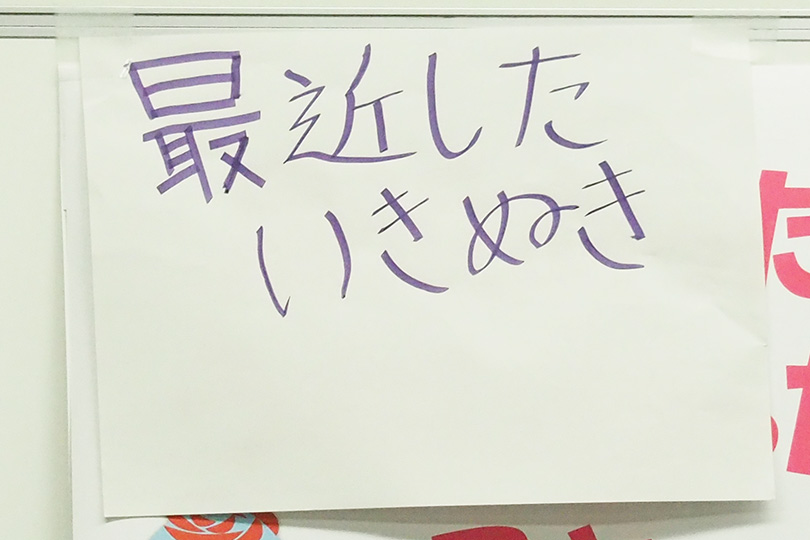 最近した
いきぬき